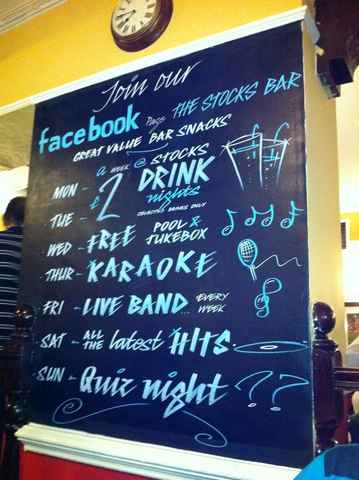 Join our
facebook Page THE STOCKS BAR
GREAT VALUE BAR SNACKS
A WEEK @ STOCKS
MON - £2 DRINK
TUE - nights
SELECTED DRINKS ONLY
WED - FREE POOL & JUKEBOX
THUR - KARAOKE
FRI - LIVE BAND... EVERY WEEK
SAT - ALL THE latest HITS
SUN - Quiz night ??